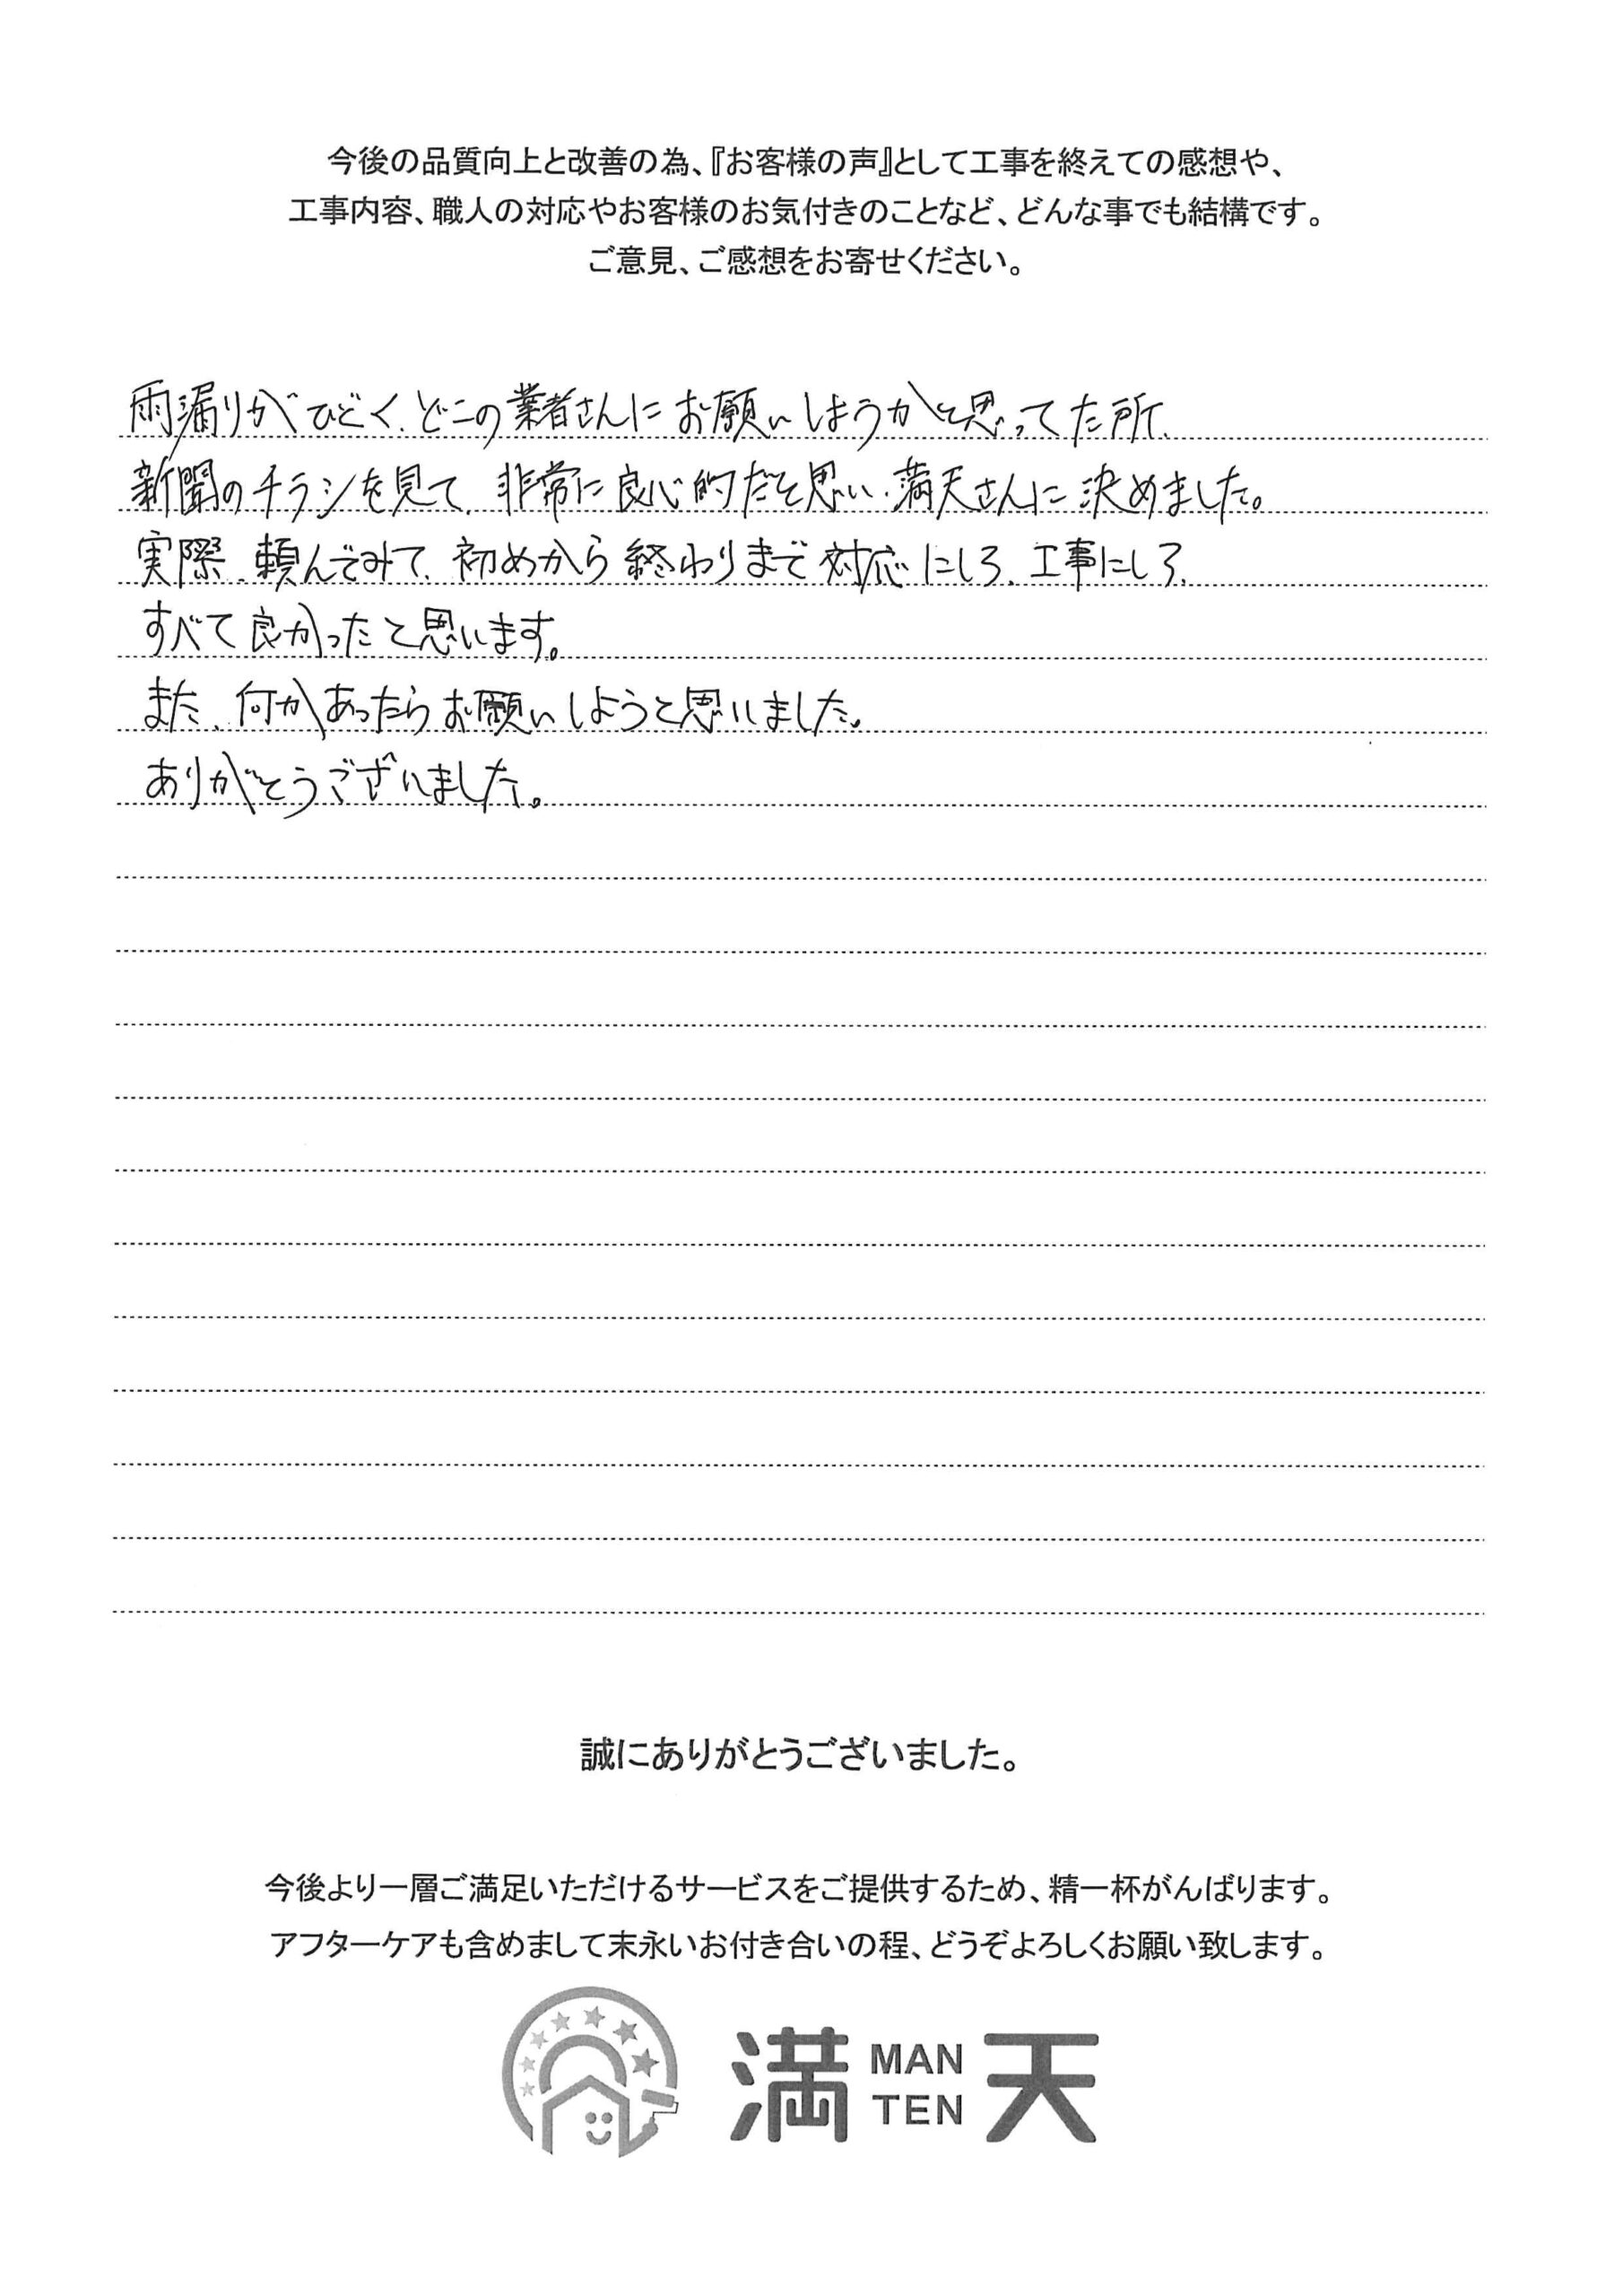 今後の品質向上と改善の為、『お客様の声』として工事を終えての感想や、
工事内容、職人の対応やお客様のお気付きのことなど、どんな事でも結構です。
ご意見、ご感想をお寄せください。
雨漏りがひどく、どこの業者さんにお願いしようかと思ってた所、
新聞のチラシを見て、非常に良心的だと思い、満天さんに決めました。
実際、頼んでみて、初めから終わりまで対応にしろ、工事にしろ、
すべて良かったと思います。
また、何かあったらお願いしようと思いました。
ありがとうございました。
誠にありがとうございました。
今後より一層ご満足いただけるサービスをご提供するため、精一杯がんばります。
アフターケアも含めまして末永いお付き合いの程、どうぞよろしくお願い致します。
満 MAN TEN 天